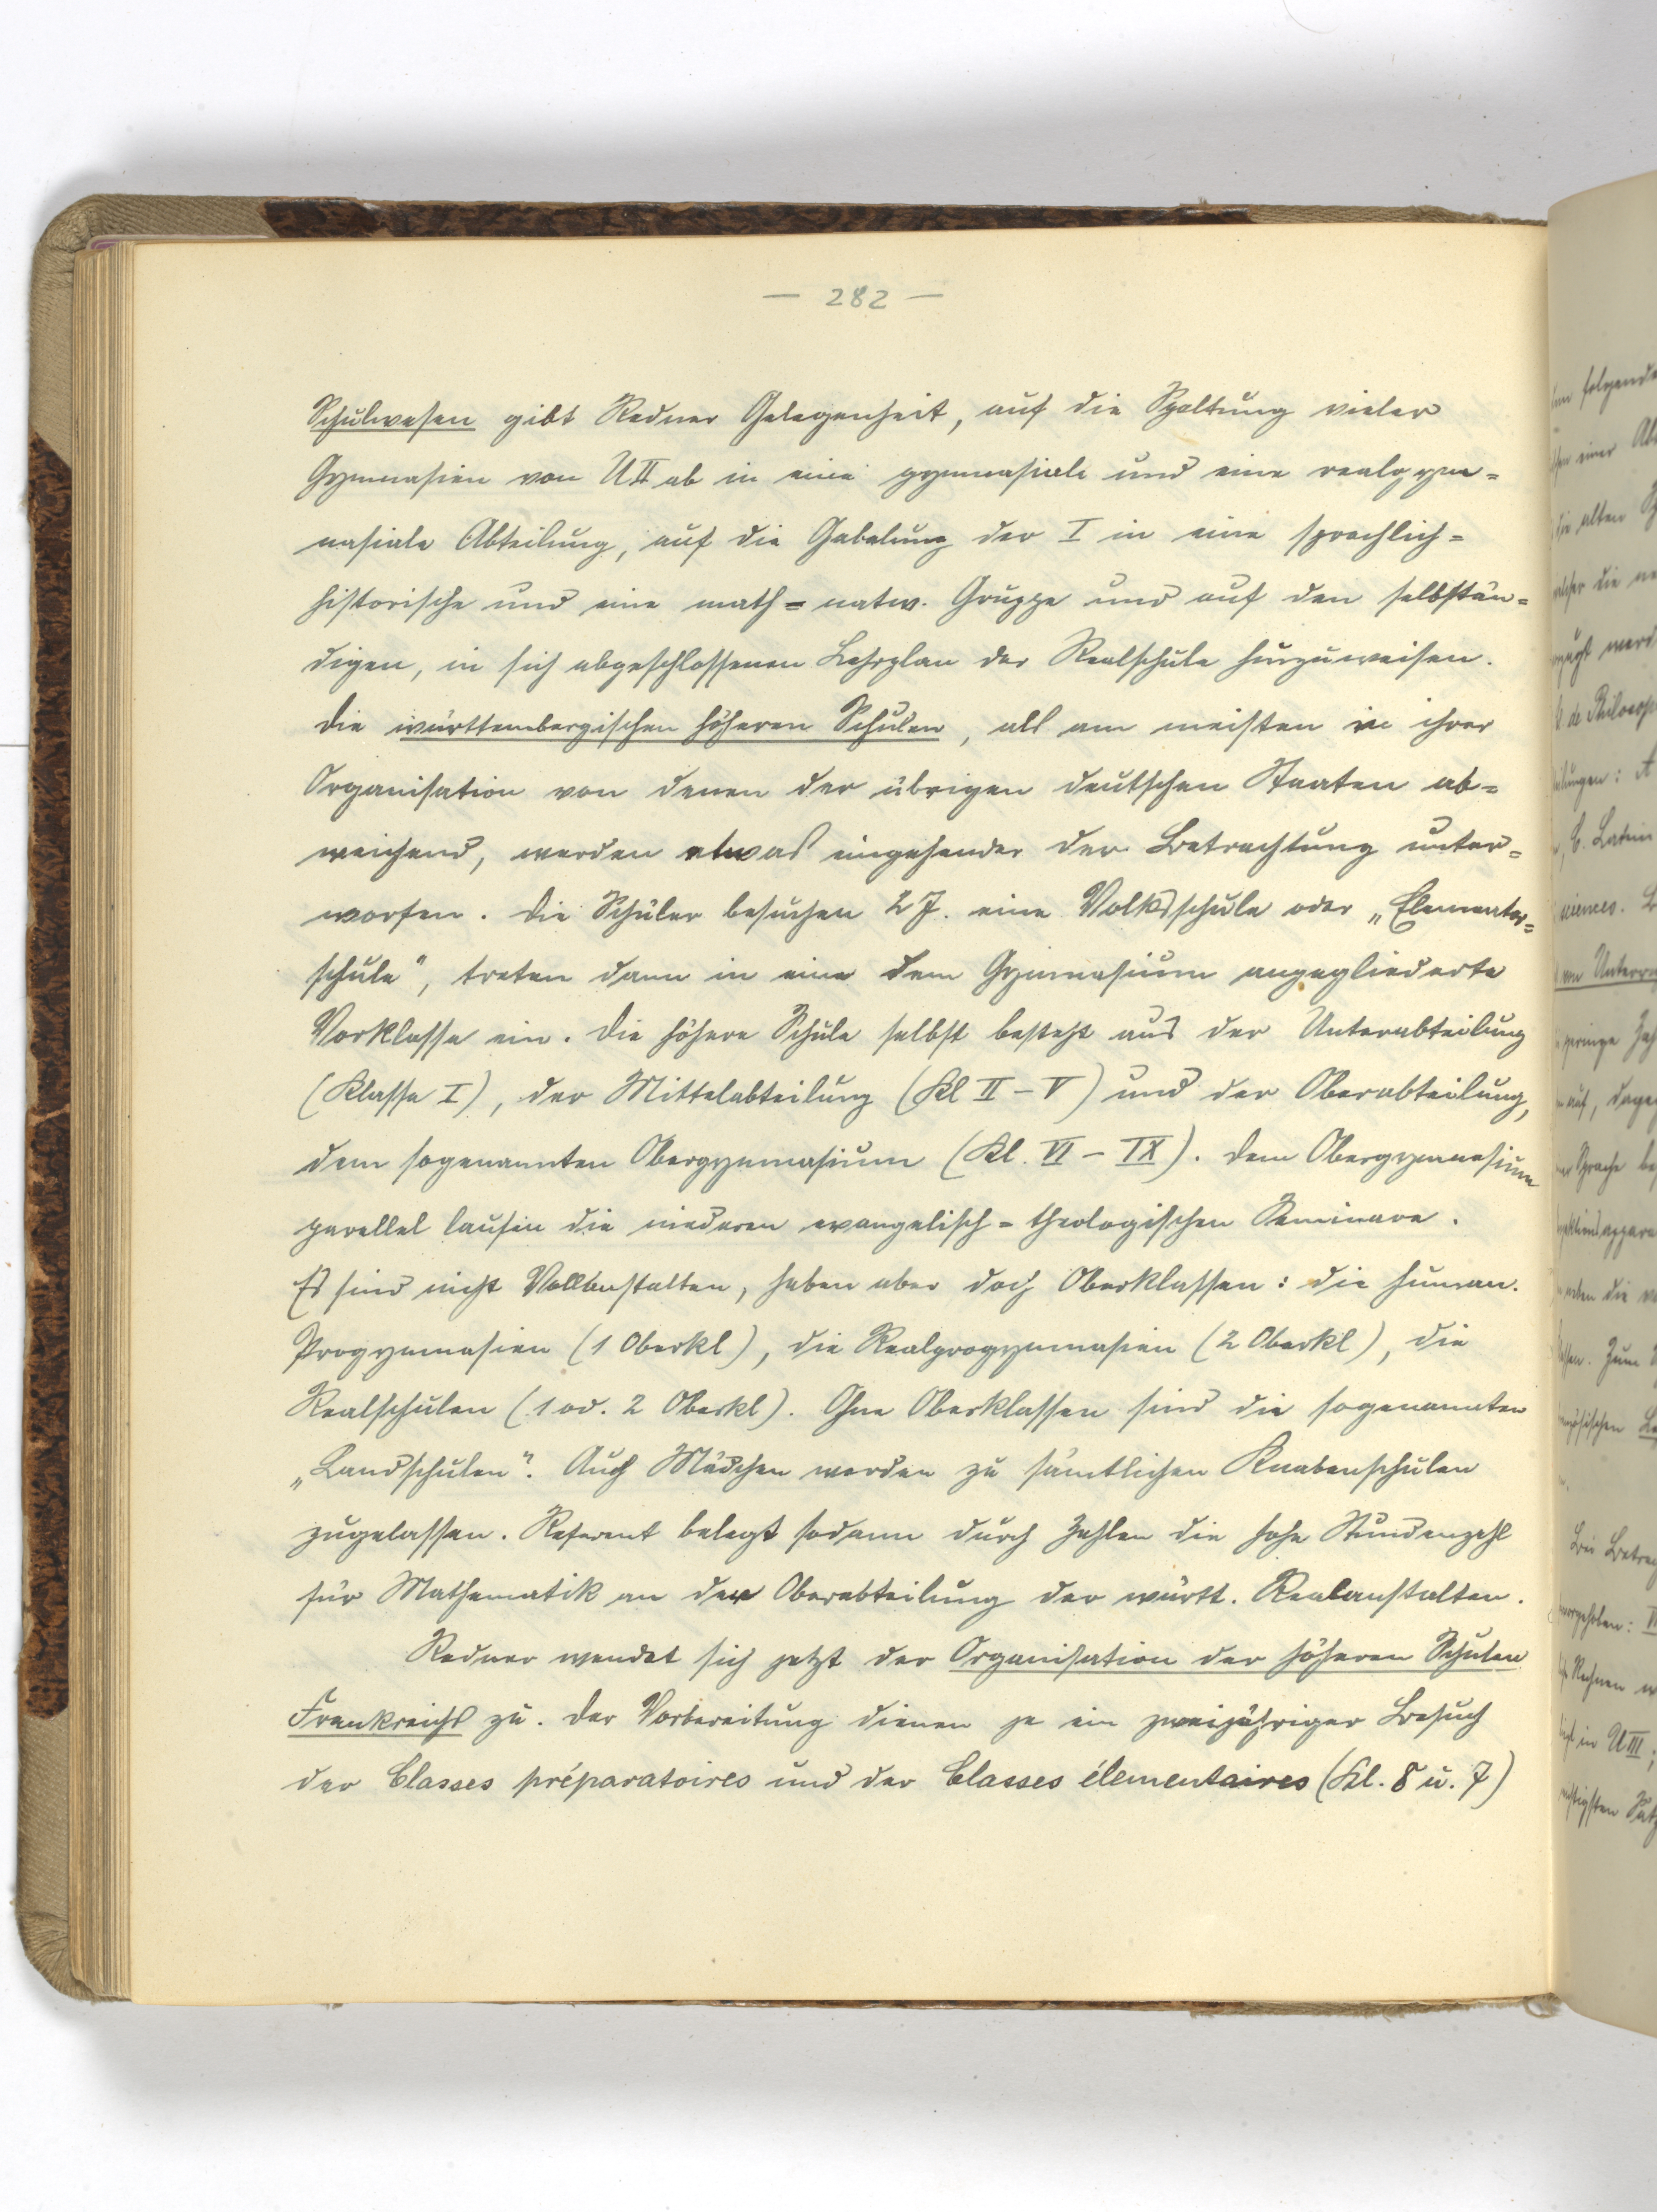 — 282 —
Schulwesen gibt Redner Gelegenheit, auf die Spaltung vieler
Gymnasien von UII ab in eine gymnasiale und eine realgym=
nasiale Abteilung, auf die Gabelung der I in eine sprachlich=
historische und eine math=natw. Gruppe und auf den selbstän=
digen, in sich abgeschlossenen Lehrplan der Realschule hinzuweisen.
Die württembergischen höheren Schulen, als am meisten in ihrer
Organisation von denen der übrigen deutschen Staaten ab=
weichend, werden etwas eingehender der Betrachtung unter=
worfen. Die Schüler besuchen 2 J. eine Volksschule oder „Elementar=
schule", treten dann in eine dem Gymnasium angegliederte
Vorklasse ein. Die höhere Schule selbst besteht aus der Unterabteilung
(Klasse I), der Mittelabteilung (Kl II – V) und der Oberabteilung,
dem sogenannten Obergymnasium (Kl. VI – IX). Dem Obergymnasium
parallel laufen die niederen evangelisch=theologischen Seminare.
Es sind nicht Vollanstalten, haben aber doch Oberklassen: die human.
Progymnasien (1 Oberkl), die Realprogymnasien (2 Oberkl), die
Realschulen (1 od. 2 Oberkl). Ohne Oberklassen sind die sogenannten
„Landschulen". Auch Mädchen werden zu sämtlichen Knabenschulen
zugelassen. Referent belegt sodann durch Zahlen die hohe Stundenzahl
für Mathematik an der Oberabteilung der württ. Realanstalten.
Redner wendet sich jetzt der Organisation der höheren Schulen
Frankreichs zu. Der Vorbereitung dienen je ein zweijähriger Besuch
der Classes préparatoires und der Classes élementaires (Kl. 8 u. 7)